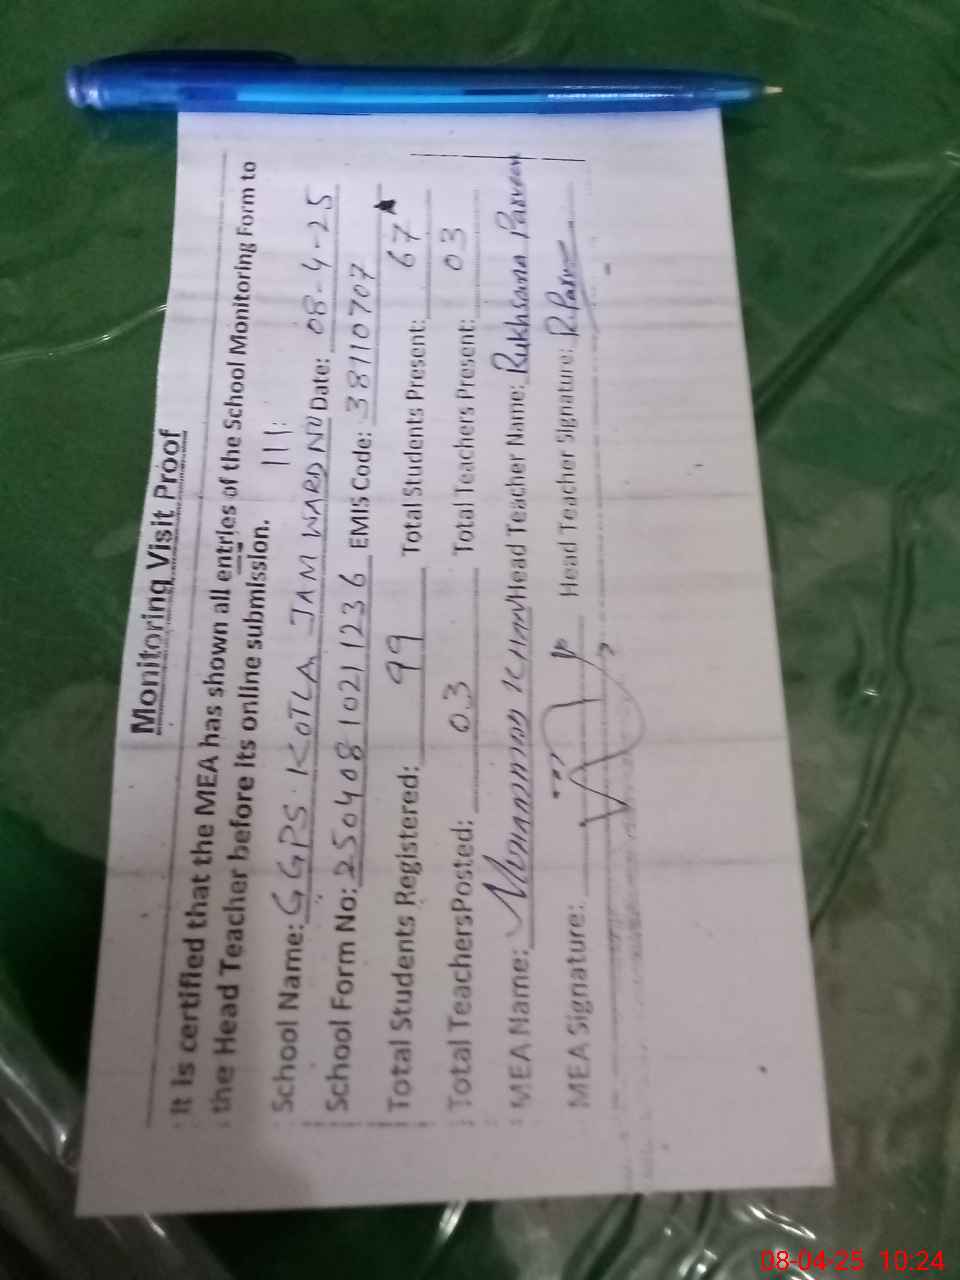 Monitoring Visit Proof
It is certified that the MEA has shown all entries of the School Monitoring Form to
the Head Teacher before its online submission.
School Name: GGPS. KOTLA JAM WARD NO III: Date: 08-4-25
School Form No: 250408 1021 1236 EMIS Code: 38110707
Total Students Registered: 99 Total Students Present: 67
Total TeachersPosted: 03 Total Teachers Present: 03
MEA Name: MUHAMMAD KHAN Head Teacher Name: Rukhsana Parveen
MEA Signature: Head Teacher Signature: R.Parv
08-04-25 10:24